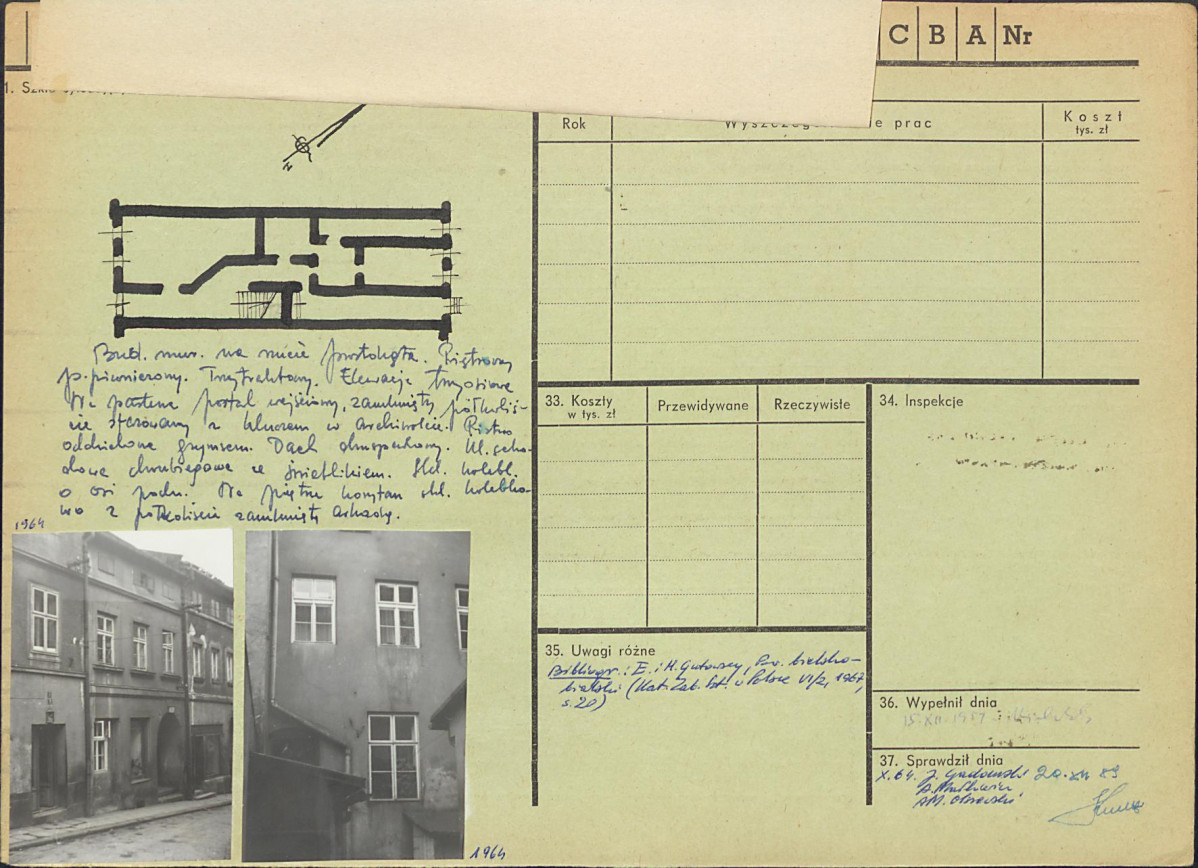 C B A Nr
Rok
Wyszczeg e prac
Koszt
tys. zł
N
Bud. mur. na rzucie prostokąta. Piętrowy
p. piwniczony. Trzytraktowy. Elewacje trzyosiowe
Na parterze portal wejściowy, zamknięty półkoliś-
cie z kluczem w archiwolcie. Piętro
oddzielone gzymsem. Dach dwuspadowy. Kl. scho-
dowa dwubiegowa ze świetlikiem. Skl. kolebk.
o osi podł. Na piętrze skl. kolebko-
wo z półkoliście zamkniętą arkadą.
1964
1964
33. Koszty
w tys. zł
Przewidywane
Rzeczywiste
34. Inspekcje
35. Uwagi różne
Bibliogr.: E. i H. Gutowscy, Pow. bielsko-
bialski (Kat. Zab. Szt. w Polsce VI/2, 1967,
s. 20)
36. Wypełnił dnia
37. Sprawdził dnia
X. 64. J. Gadomski 20. XII 83